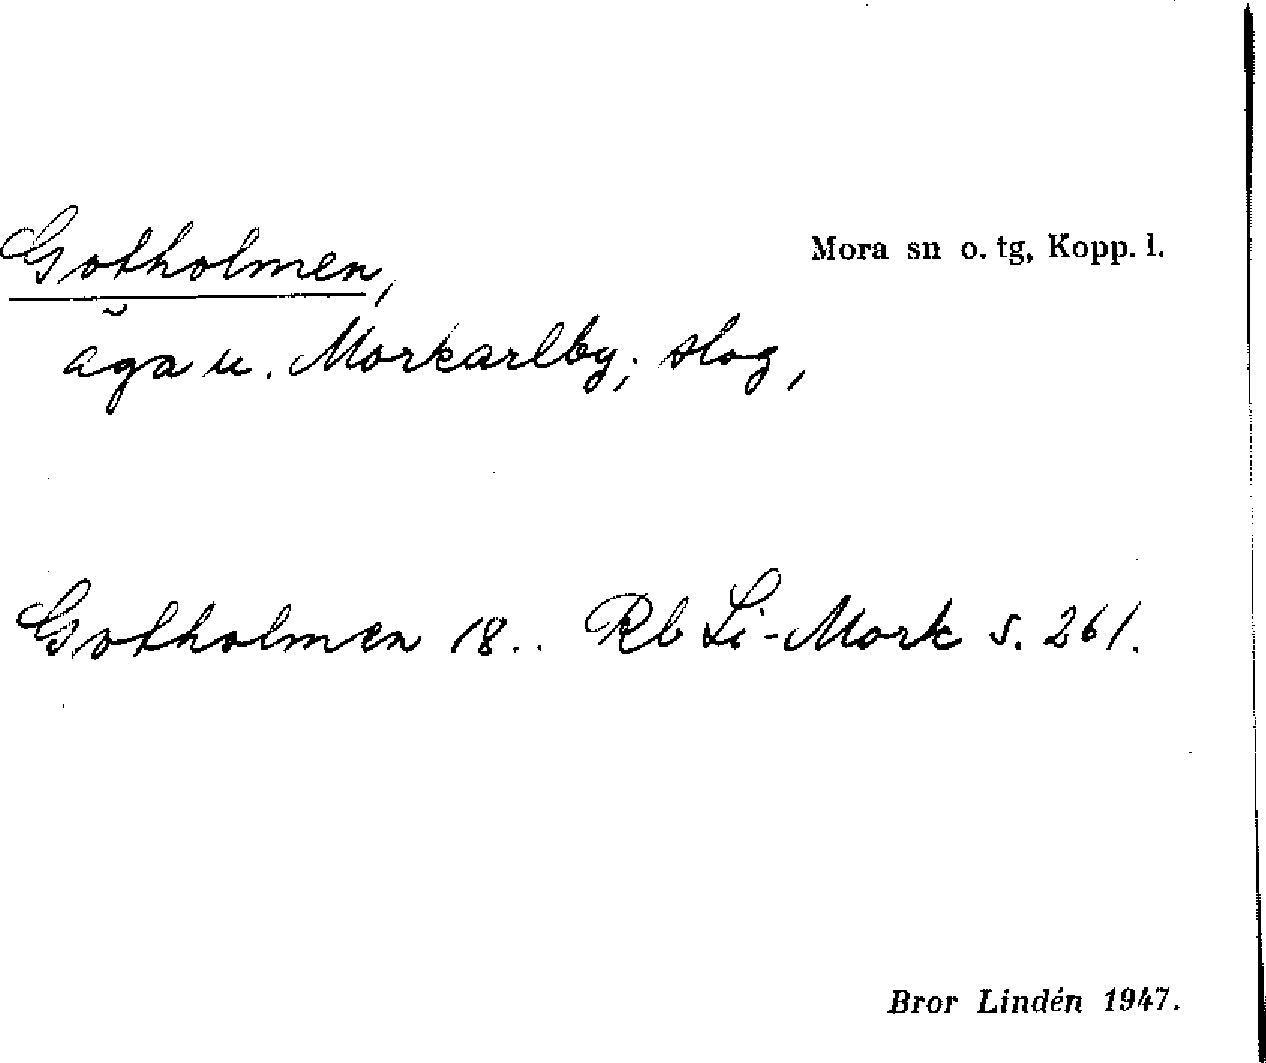 Gotholmen,
Mora sn o. tg, Kopp. l.
äga u. Morkarlby; slog,
Gotholmen 18.. Rb Li-Mork s. 261.
Bror Lindén 1947.